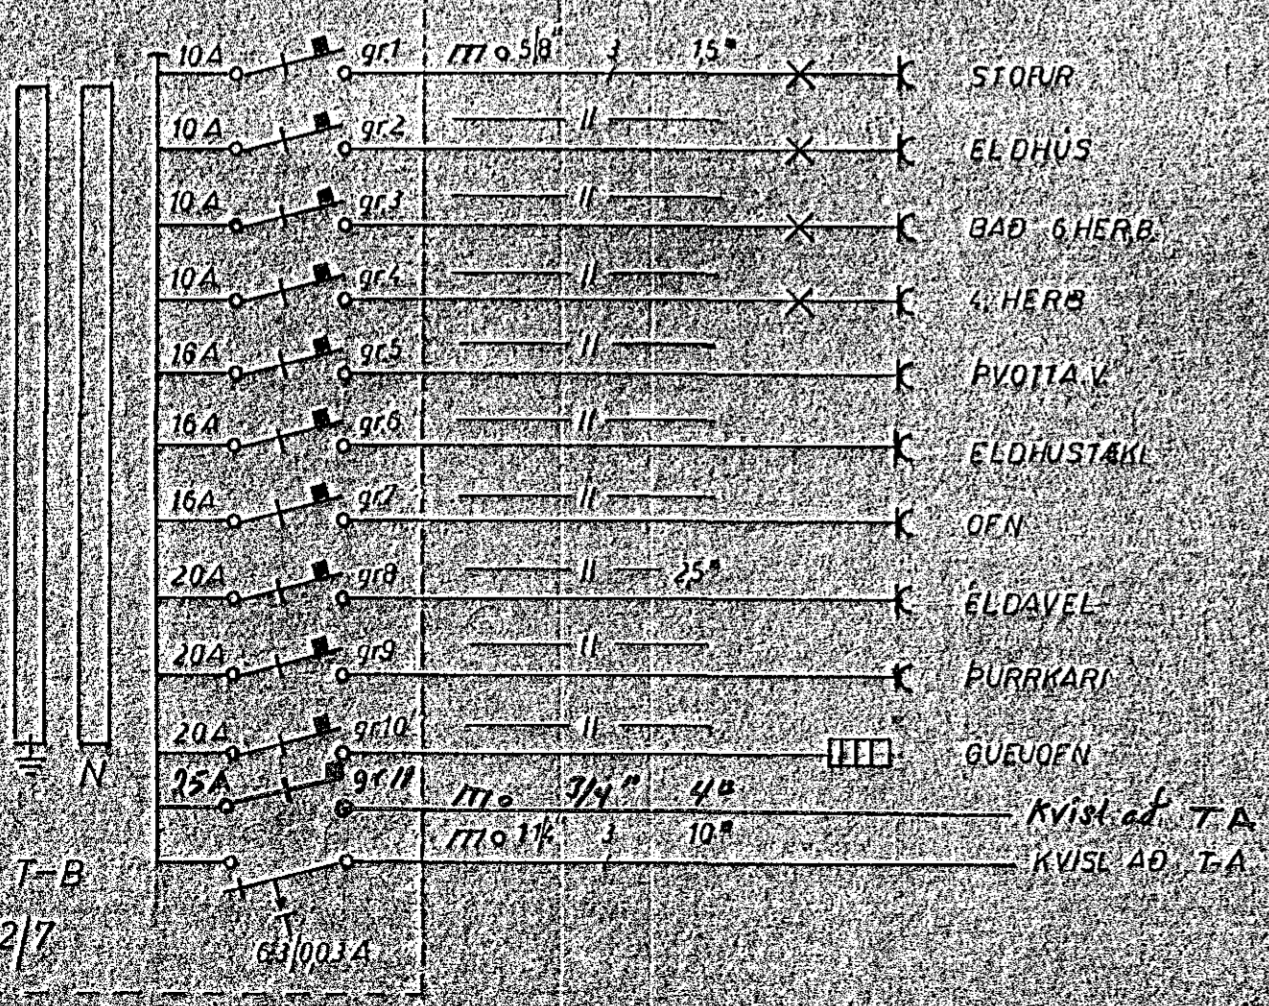 10A gr.1 m o 5/8" 3 1,5▫ STOFUR
10A gr.2 — // — ELDHÚS
10A gr.3 — // — BAÐ 6.HERB.
10A gr.4 — // — 4. HERB
16A gr.5 — // — ÞVOTTA.V.
16A gr.6 — // — ELDHUSTÆKI
16A gr.7 — // — OFN
20A gr8 — // — 2,5▫ ELDAVEL
20A gr9 — // — ÞURRKARI
20A gr10 — // — GUFUOFN
N 25A gr.11 m o 3/4" 4▫ Kvísl að T A
m o 1 1/4" 3 10▫ KVÍSL AÐ T-A
T-B
2/7
63/0,03A